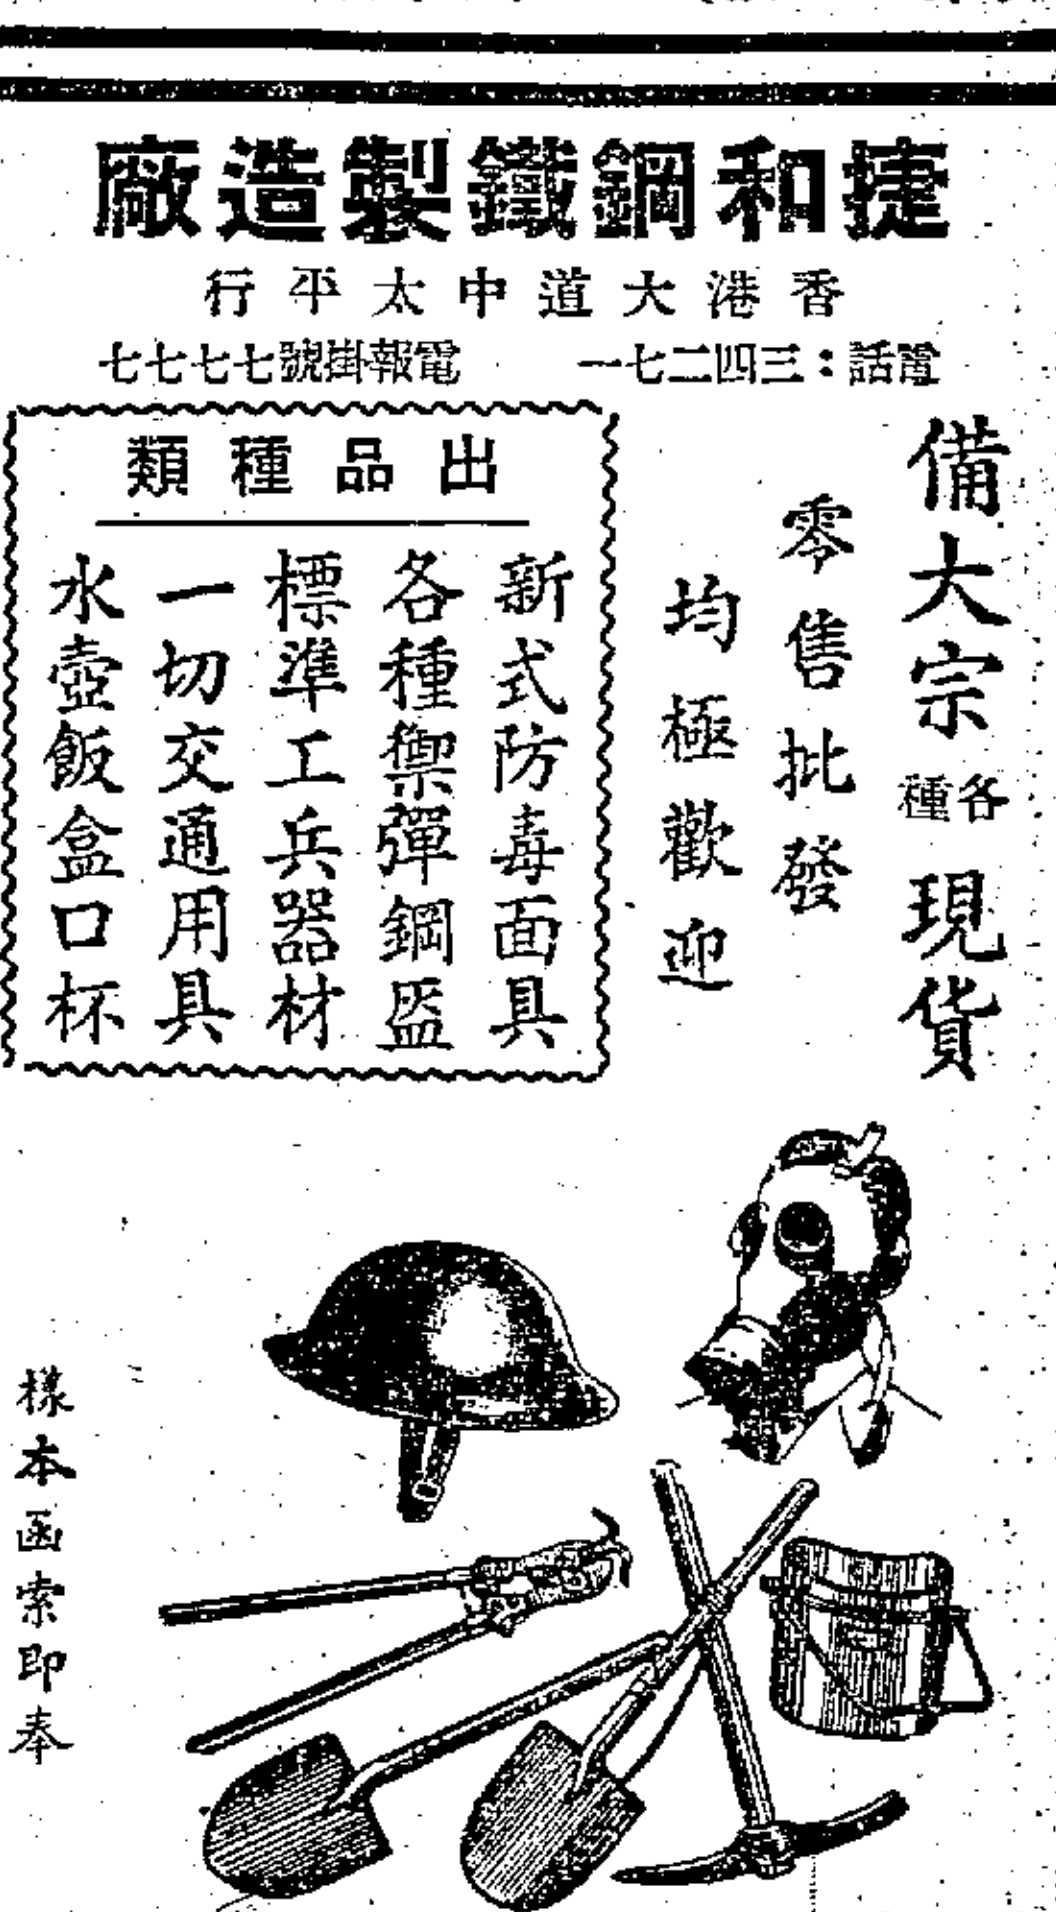 捷和鋼鐵製造廠
香港大道中太平行
電話：三四二七一　電報掛號七七七七
備大宗各種現貨
零售批發
均極歡迎
出品種類
新式防毒面具
各種禦彈鋼盔
標準工兵器材
一切交通用具
水壺飯盒口杯
樣本函索即奉